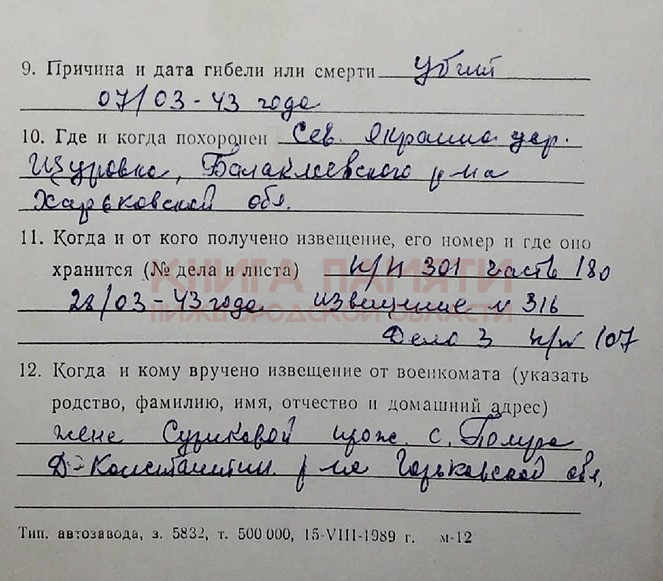 9. Причина и дата гибели или смерти убит
07/03-43 года
10. Где и когда похоронен Сев. окраина дер.
Щуровка, Балаклеевского р-на
Харьковской обл.
11. Когда и от кого получено извещение, его номер и где оно
хранится (№ дела и листа) п/п 301 часть 180
28/03-43 года извещение № 316
Дело 3 п/п 107
12. Когда и кому вручено извещение от военкомата (указать
родство, фамилию, имя, отчество и домашний адрес)
жене Суриковой прож. с.
Д-Константин. р-на Горьковской обл,
Тип. автозавода, з. 5832, т. 500 000, 15-VIII-1989 г. м-12
КНИГА ПАМЯТИ
НИЖЕГОРОДСКОЙ ОБЛАСТИ